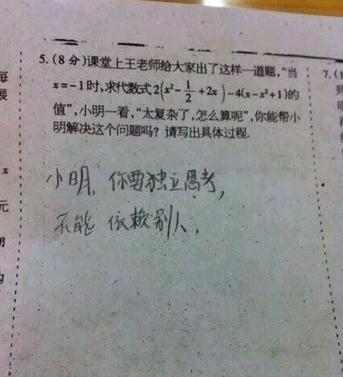 5.(8分)课堂上王老师给大家出了这样一道题,“当
x=-1时,求代数式2(x²-1/2+2x)-4(x-x²+1)的
值”,小明一看,“太复杂了,怎么算呢”,你能帮小
明解决这个问题吗?请写出具体过程.
小明,你要独立思考,
不能依赖别人.
7.(1
每
x
元